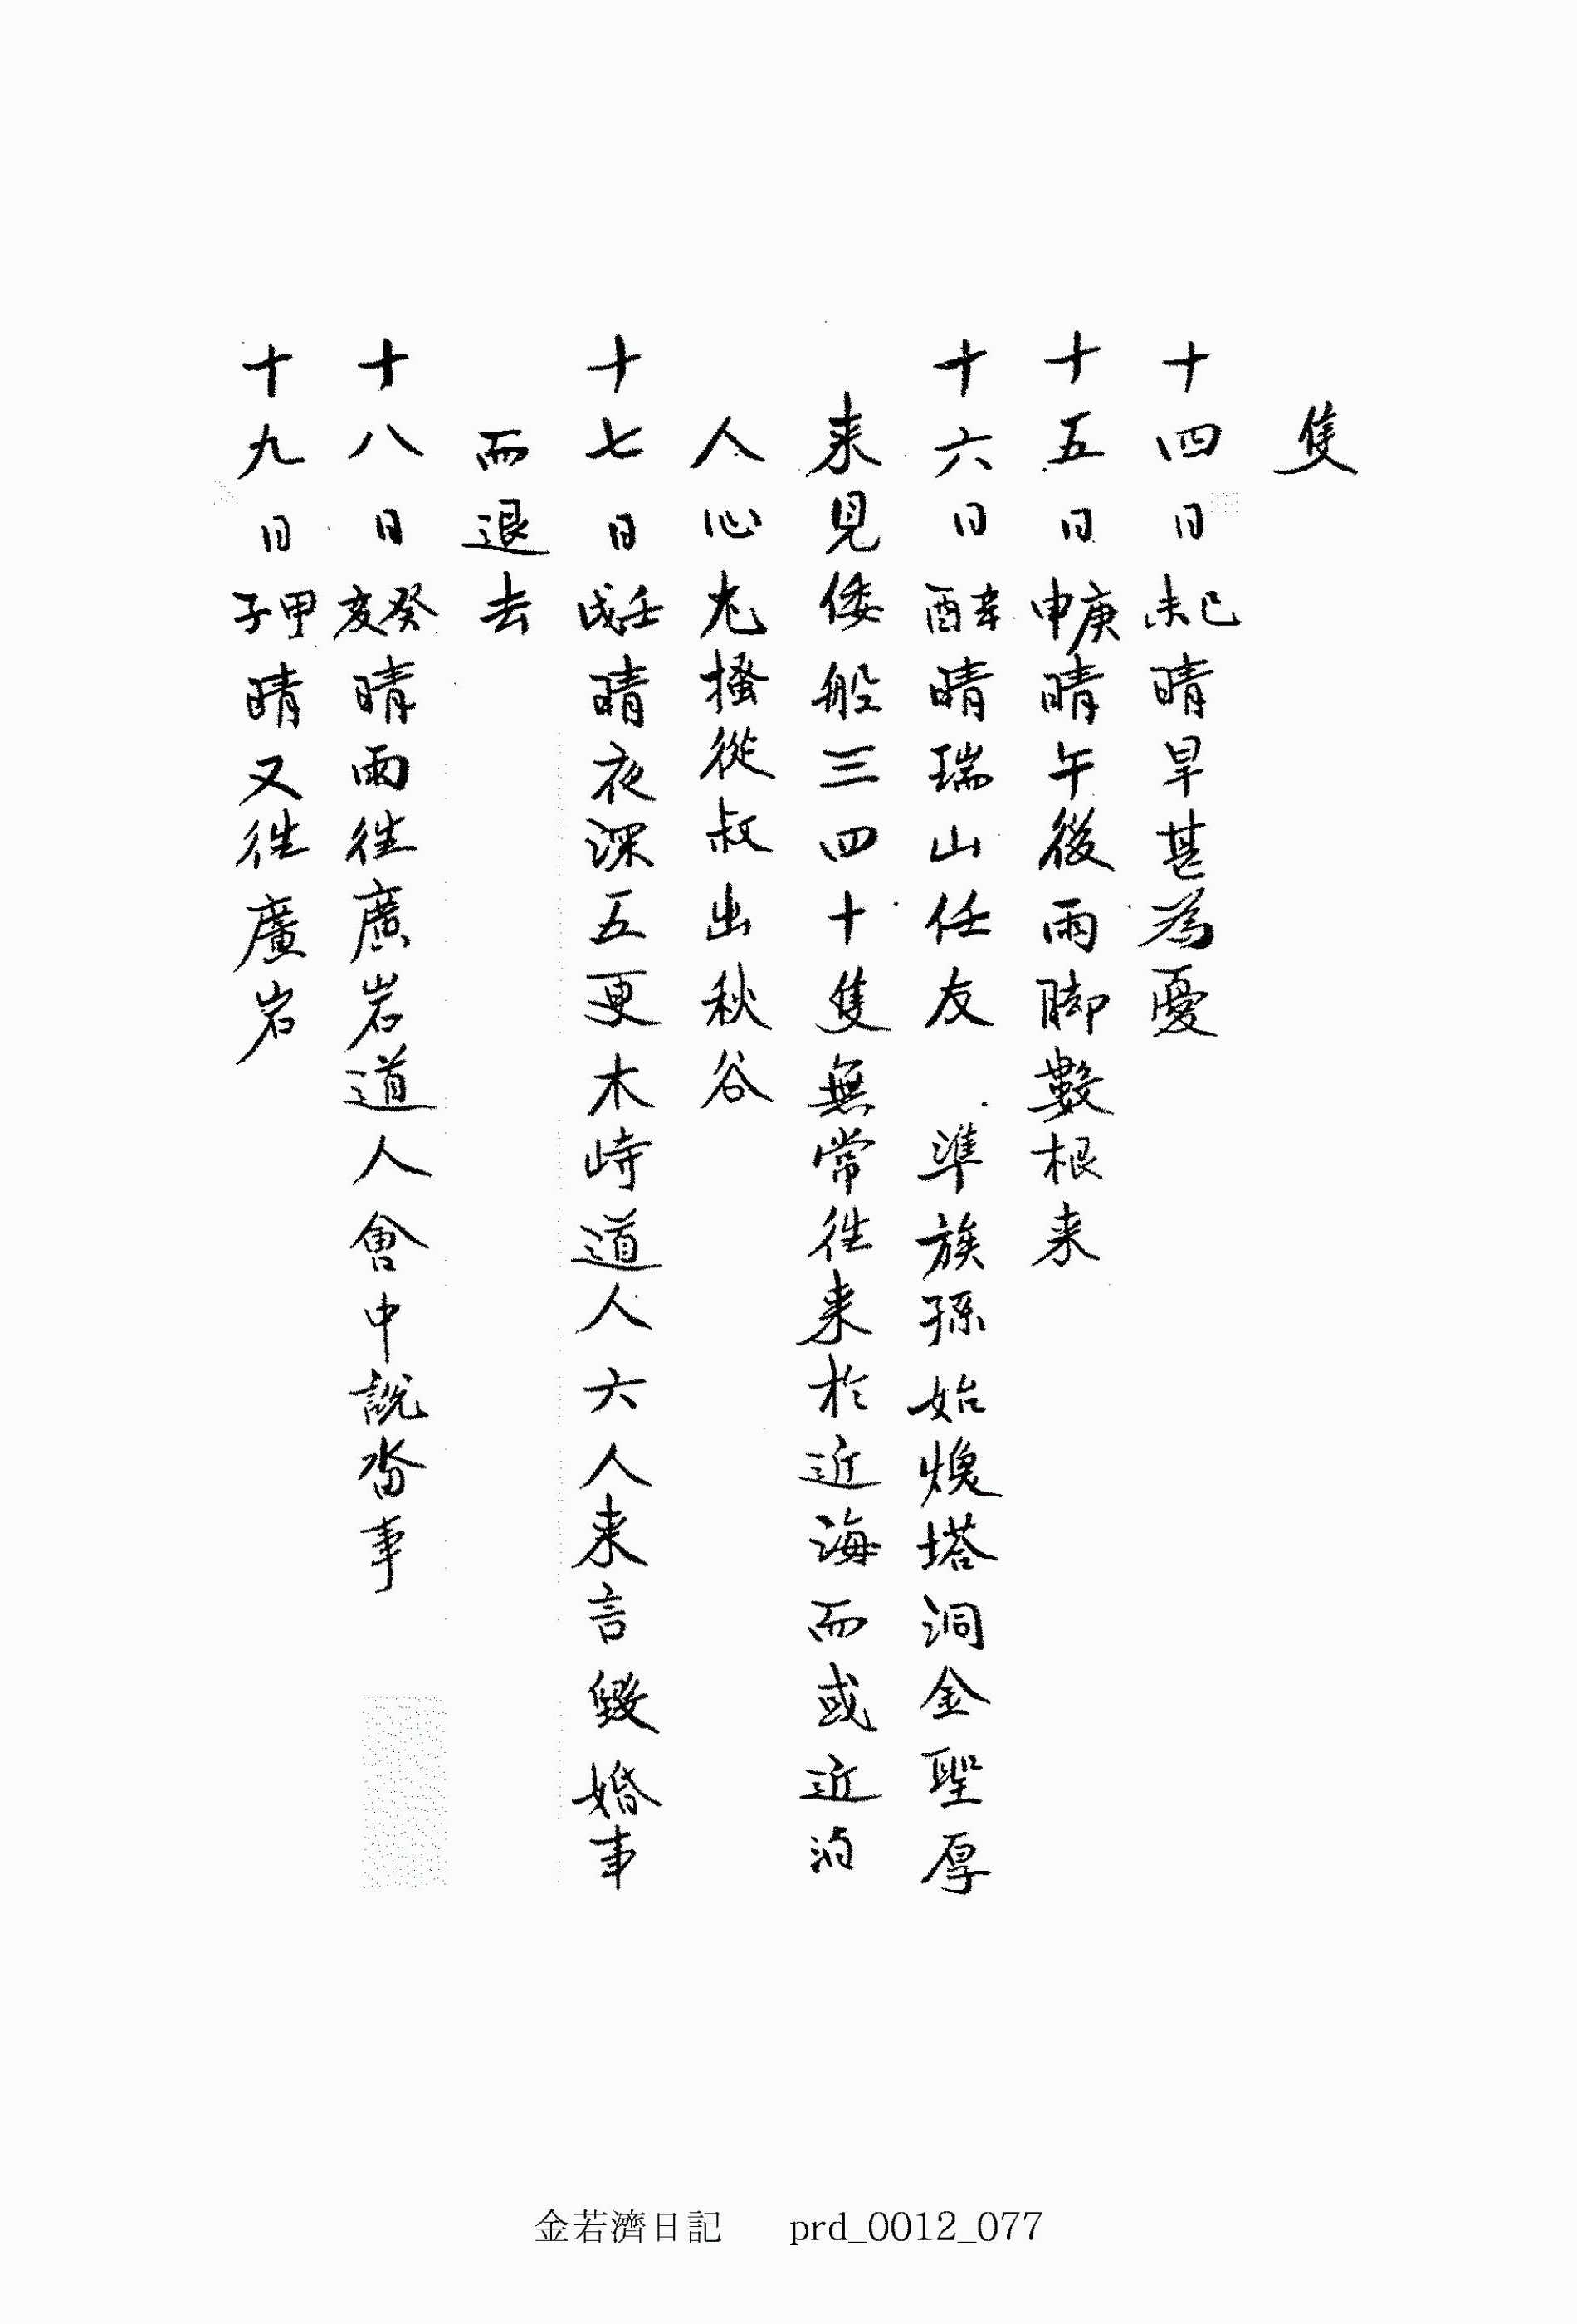 隻
十四日己未晴旱甚為憂
十五日庚申晴午後雨脚數根来
十六日辛酉晴瑞山任友 準族孫始煥塔洞金聖厚
来見倭船三四十隻無常往来於近海而或近泊
人心尤搔從叔出秋谷
十七日壬戌晴夜深五更木峙道人六人来言毀婚事
而退去
十八日癸亥晴雨往廣岩道人會中說畓事
十九日甲子晴又往廣岩
金若濟日記 prd_0012_077